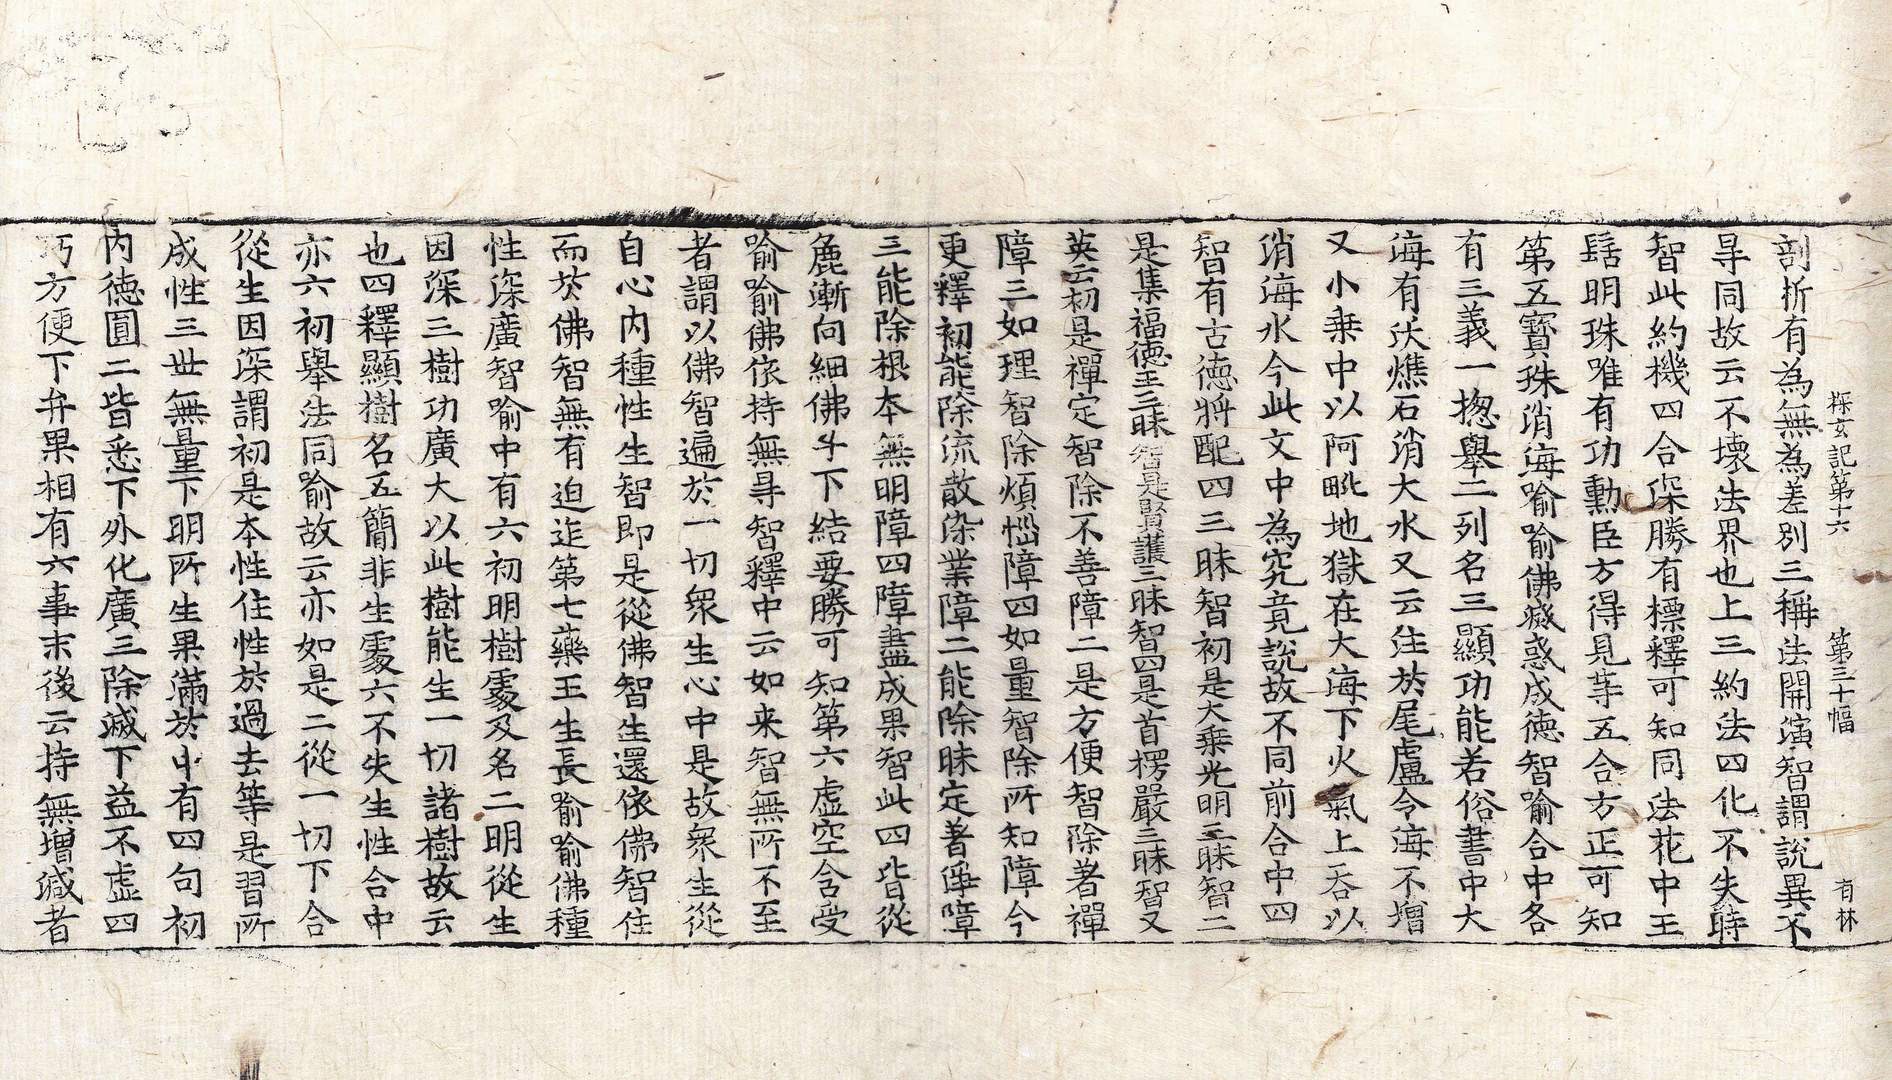 探玄記第十六　第三十幅　有林
剖折有為無為差別三稱法開演智謂說異不
㝵同故云不壞法界也上三約法四化不失時
智此約機四合深勝有標釋可知同法花中王
髻明珠唯有功勳臣方得見等五合方正可知
第五寶珠消海喻喻佛滅惑成德智喻合中各
有三義一揔舉二列名三顯功能若俗書中大
海有沃燋石消大水又云注於尾盧令海不增
又小乘中以阿毗地獄在大海下火氣上吞以
消海水今此文中為究竟說故不同前合中四
智有古德將配四三昧智初是大乘光明三昧智二
是集福德王三昧智是賢護三昧智四是首楞嚴三昧智又
英云初是禪定智除不善障二是方便智除著禪
障三如理智除煩惱障四如量智除所知障今
更釋初能除流散染業障二能除昧定著障
三能除根本無明障四障盡成果智此四皆從
麁漸向細佛子下結要勝可知第六虛空含受
喻喻佛依持無㝵智釋中云如来智無所不至
者謂以佛智遍於一切衆生心中是故衆生從
自心內種性生智即是從佛智生還依佛智住
而於佛智無有迫迮第七藥王生長喻喻佛種
性深廣智喻中有六初明樹䖏及名二明從生
因深三樹功廣大以此樹能生一切諸樹故云
也四釋顯樹名五簡非生䖏六不失生性合中
亦六初舉法同喻故云亦如是二從一切下合
從生因深謂初是本性住性於過去等是習所
成性三世無量下明所生果滿於中有四句初
內德圓二皆悉下外化廣三除滅下益不虛四
巧方便下弁果相有六事末後云持無增減者